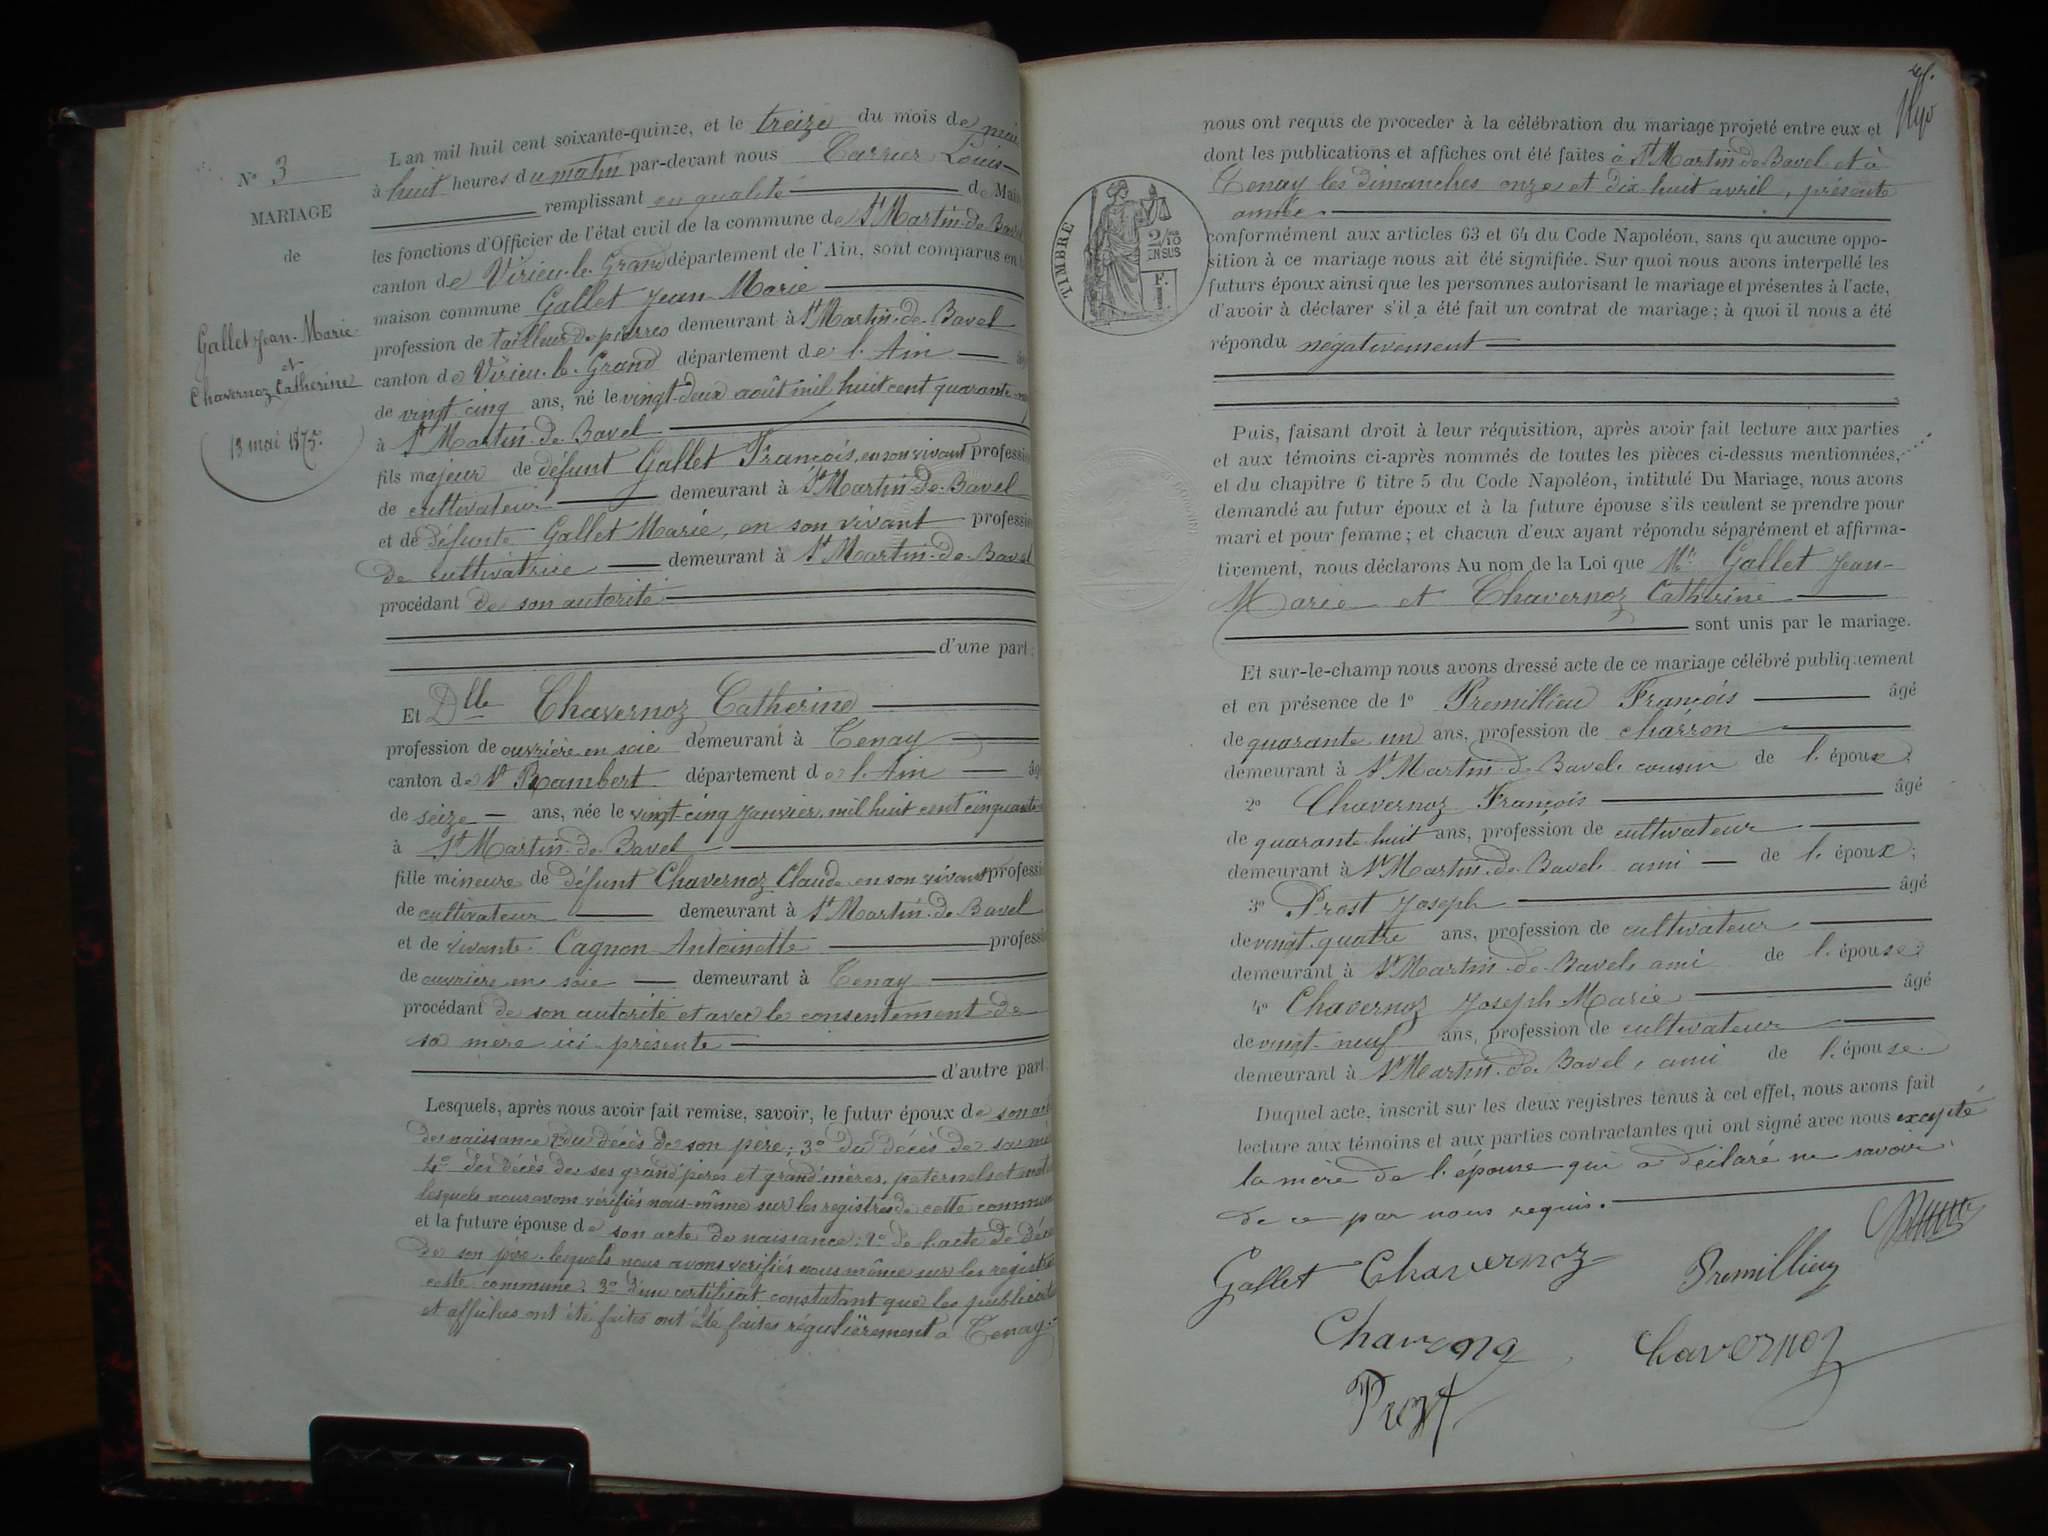 N° 3
MARIAGE
de
Gallet Jean-Marie
et
Chavernoz Catherine
13 mai 1875.
L an mil huit cent soixante-quinze, et le treize du mois de mai
à huit heures du matin par-devant nous Carrier Louis
remplissant en qualité de Mai
les fonctions d'Officier de l'état civil de la commune de St Martin-de-Bavel
canton de Virieu-le-Grand département de l'Ain, sont comparus en
maison commune Gallet Jean-Marie
profession de tailleur de pierres demeurant à St Martin-de-Bavel
canton de Virieu-le-Grand département de l'Ain âg
de vingt cinq ans, né le vingt-deux août mil huit cent quarante
à St Martin-de-Bavel
fils majeur de défunt Gallet François, en son vivant professio
de cultivateur demeurant à St Martin-de-Bavel
et de défunte Gallet Marie, en son vivant professio
de cultivatrice demeurant à St Martin-de-Bavel
procédant de son autorité
d'une part;
Et Dlle Chavernoz Catherine
profession de ouvrière en soie demeurant à Tenay
canton de St Rambert département de l'Ain âg
de seize ans, née le vingt-cinq Janvier, mil huit cent cinquante
à St Martin-de-Bavel
fille mineure de défunt Chavernoz Claude en son vivant professi
de cultivateur demeurant à St Martin-de-Bavel
et de vivante Cagnon Antoinette professi
de ouvrière en soie demeurant à Tenay
procédant de son autorité et avec le consentement de
sa mère ici présente
d'autre part.
Lesquels, après nous avoir fait remise, savoir, le futur époux de son acte
de naissance 2° du décès de son père; 3° du décès de sa mè
4° des décès de ses grand'pères et grand'mères, paternels et mate
lesquels nous avons vérifiés nous-même sur les registres de cette commun
et la future épouse de son acte de naissance; 2° de l'acte de décè
de son père. lesquels nous avons vérifiés nous même sur les registre
cette commune; 3° d'un certificat constatant que les publicat
et affiches ont été faites ont été faites régulièrement à Tenay
nous ont requis de proceder à la célébration du mariage projeté entre eux et
dont les publications et affiches ont été faites à St Martin de Bavel et à
Tenay les dimanches onze et dix-huit avril, présente
année.
conformément aux articles 63 et 64 du Code Napoléon, sans qu aucune oppo-
sition à ce mariage nous ait été signifiée. Sur quoi nous avons interpellé les
futurs époux ainsi que les personnes autorisant le mariage et présentes à l'acte,
d'avoir à déclarer s'il a été fait un contrat de mariage; à quoi il nous a été
répondu négativement
TIMBRE
2/10
EN SUS
F.
1.
Puis, faisant droit à leur réquisition, après avoir fait lecture aux parties
et aux témoins ci-après nommés de toutes les pièces ci-dessus mentionnées,
et du chapitre 6 titre 5 du Code Napoléon, intitulé Du Mariage, nous avons
demandé au futur époux et à la future épouse s'ils veulent se prendre pour
mari et pour femme; et chacun d'eux ayant répondu séparément et affirma-
tivement, nous déclarons Au nom de la Loi que Mr Gallet Jean-
Marie et Chavernoz Catherine
sont unis par le mariage.
Et sur-le-champ nous avons dressé acte de ce mariage célébré publiquement
et en présence de 1° Premillieu François âgé
de quarante un ans, profession de charron
demeurant à St Martin-de-Bavel, cousin de l'époux;
2° Chavernoz François âgé
de quarante huit ans, profession de cultivateur
demeurant à St Martin-de-Bavel ami de l'époux;
3° Prost Joseph âgé
de vingt quatre ans, profession de cultivateur
demeurant à St Martin-de-Bavel, ami de l'épouse;
4° Chavernoz Joseph Marie âgé
de vingt-neuf ans, profession de cultivateur
demeurant à St Martin-de-Bavel, ami de l'épouse.
Duquel acte, inscrit sur les deux registres tenus à cet effet, nous avons fait
lecture aux témoins et aux parties contractantes qui ont signé avec nous excepté
la mère de l'épouse qui a déclaré ne savoir
de ce par nous requis.
Gallet Chavernoz Premillieu
Chavernoz Chavernoz
Prost